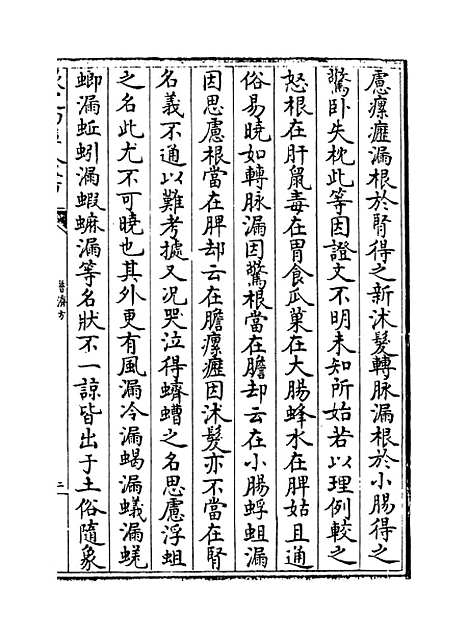 慮瘰癧漏根於腎得之新沐髮轉脉漏根於小腸得之
驚卧失枕此等因證文不明未知所始若以理例較之
怒根在肝䑕毒在胃食瓜菓在大腸蜂水在脾姑且通
俗易曉如轉脉漏因驚根當在膽却云在小腸蜉蛆漏
因思慮根當在脾却云在膽瘰癧因沐髮亦不當在腎
名義不通以難考據又況哭泣得蠐螬之名思慮浮蛆
之名此尤不可曉也其外更有風漏冷漏蝎漏蟻漏蜣
螂漏蚯蚓漏蝦蟆漏等名狀不一諒皆出于土俗隨象
普濟方